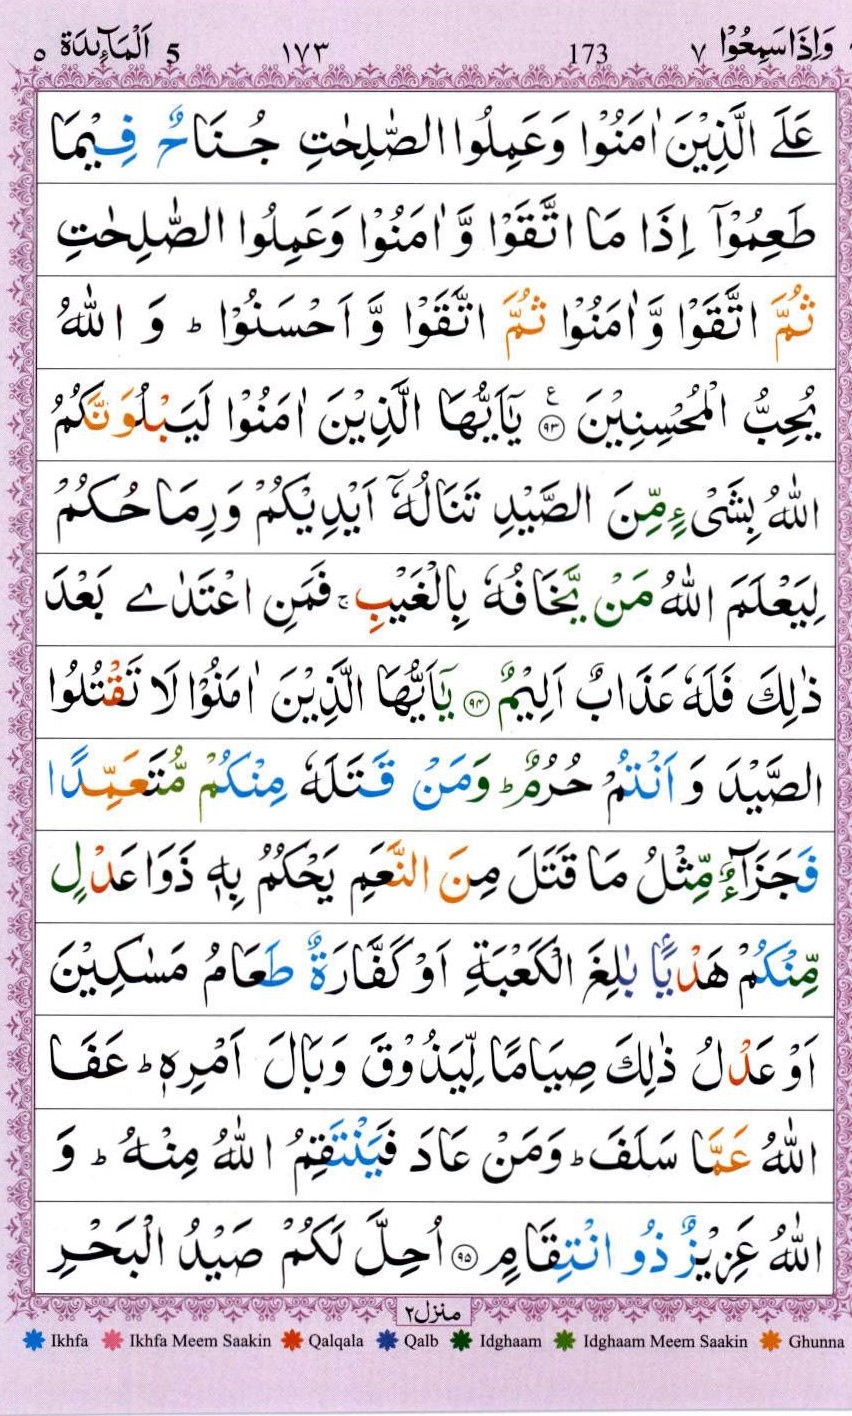 وَاِذَا سَمِعُوْا ٧ 173 ١٧٣ 5 اَلْمَآئِدَة ٥
عَلَى الَّذِيْنَ اٰمَنُوْا وَعَمِلُوا الصّٰلِحٰتِ جُنَاحٌ فِيْمَا
طَعِمُوْٓا اِذَا مَا اتَّقَوْا وَّاٰمَنُوْا وَعَمِلُوا الصّٰلِحٰتِ
ثُمَّ اتَّقَوْا وَّاٰمَنُوْا ثُمَّ اتَّقَوْا وَّاَحْسَنُوْا ؕ وَ اللّٰهُ
يُحِبُّ الْمُحْسِنِيْنَ ع ٩٣ يٰٓاَيُّهَا الَّذِيْنَ اٰمَنُوْا لَيَبْلُوَنَّكُمُ
اللّٰهُ بِشَىْءٍ مِّنَ الصَّيْدِ تَنَالُهٗۤ اَيْدِيْكُمْ وَرِمَاحُكُمْ
لِيَعْلَمَ اللّٰهُ مَنْ يَّخَافُهٗ بِالْغَيْبِ ۚ فَمَنِ اعْتَدٰے بَعْدَ
ذٰلِكَ فَلَهٗ عَذَابٌ اَلِيْمٌ ٩٤ يٰٓاَيُّهَا الَّذِيْنَ اٰمَنُوْا لَا تَقْتُلُوا
الصَّيْدَ وَ اَنْتُمْ حُرُمٌ ؕ وَمَنْ قَتَلَهٗ مِنْكُمْ مُّتَعَمِّدًا
فَجَزَآءٌ مِّثْلُ مَا قَتَلَ مِنَ النَّعَمِ يَحْكُمُ بِهٖ ذَوَا عَدْلٍ
مِّنْكُمْ هَدْيًۢا بٰلِغَ الْكَعْبَةِ اَوْ كَفَّارَةٌ طَعَامُ مَسٰكِيْنَ
اَوْ عَدْلُ ذٰلِكَ صِيَامًا لِّيَذُوْقَ وَبَالَ اَمْرِهٖ ؕ عَفَا
اللّٰهُ عَمَّا سَلَفَ ؕ وَمَنْ عَادَ فَيَنْتَقِمُ اللّٰهُ مِنْهُ ؕ وَ
اللّٰهُ عَزِيْزٌ ذُو انْتِقَامٍ ٩٥ اُحِلَّ لَكُمْ صَيْدُ الْبَحْرِ
منزل ٢
Ikhfa Ikhfa Meem Saakin Qalqala Qalb Idghaam Idghaam Meem Saakin Ghunna